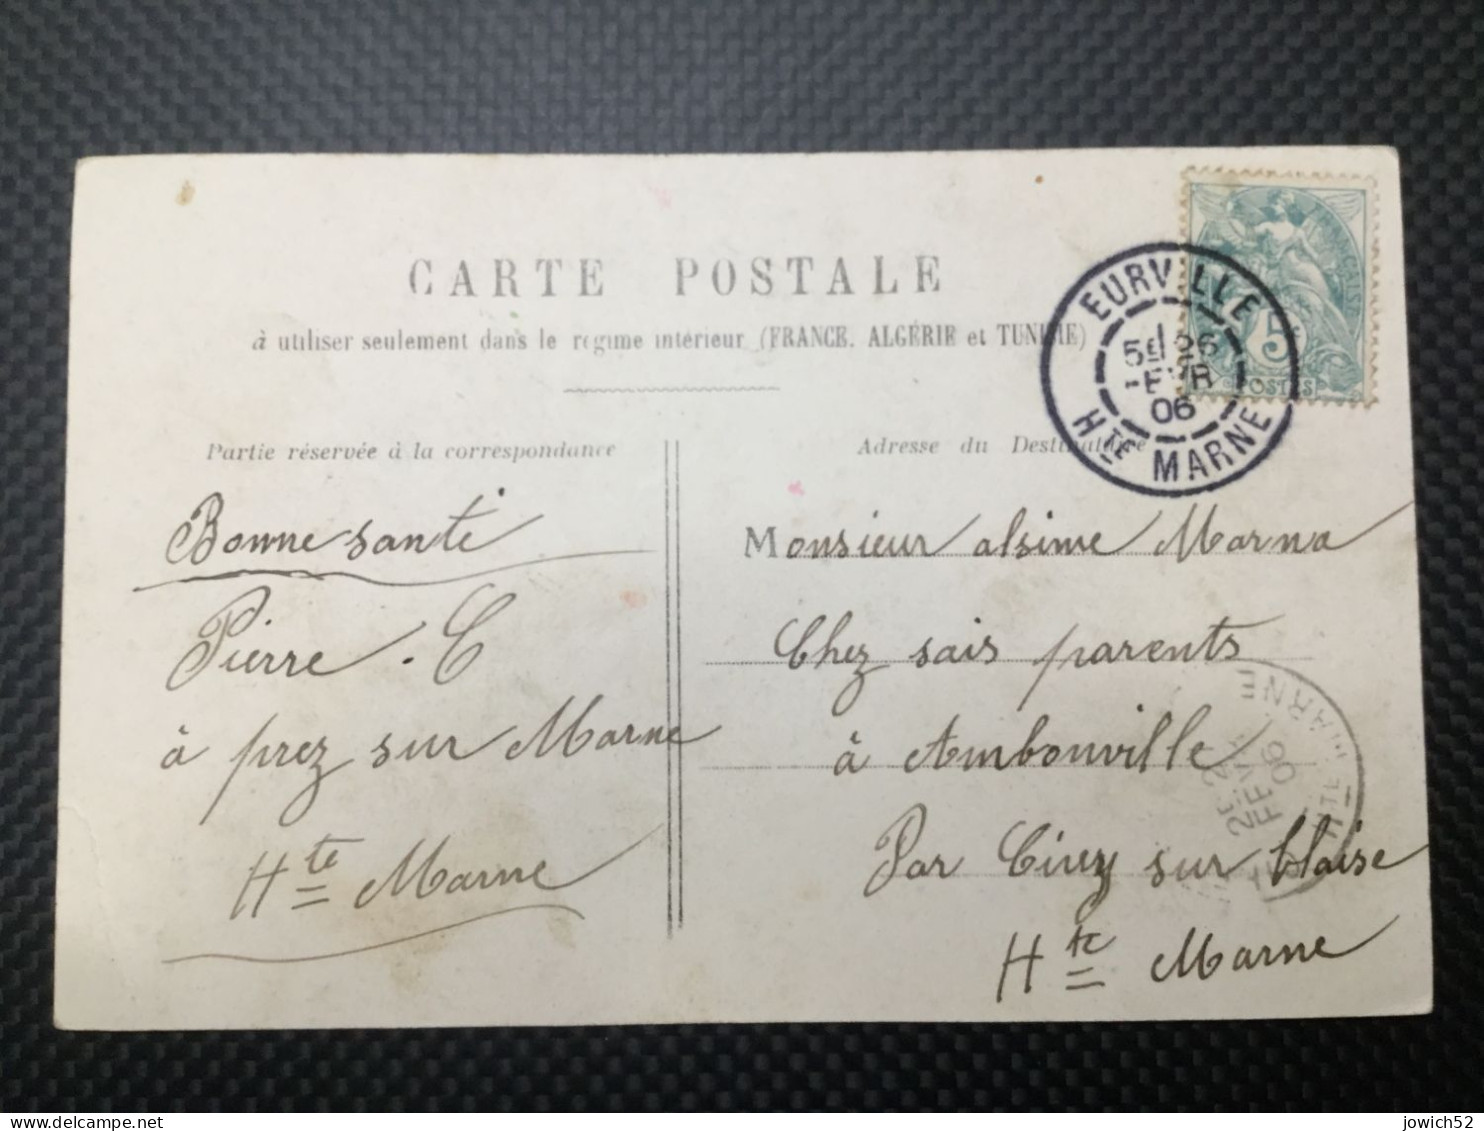 CARTE POSTALE
à utiliser seulement dans le régime intérieur (FRANCE. ALGÉRIE et TUNISIE)
Partie réservée à la correspondance
Adresse du Destinataire
EURVILLE
5E 26
FEVR
06
HTE MARNE
FRANÇAISE
5
POSTES
Bonne santé
Pierre. C
à prez sur Marne
Hte Marne
Monsieur alsime Marna
Chez sais parents
à Ambonville
Par Cirey sur blaise
Hte Marne
2E
FEVR.
06
HTE MARNE
jowich52